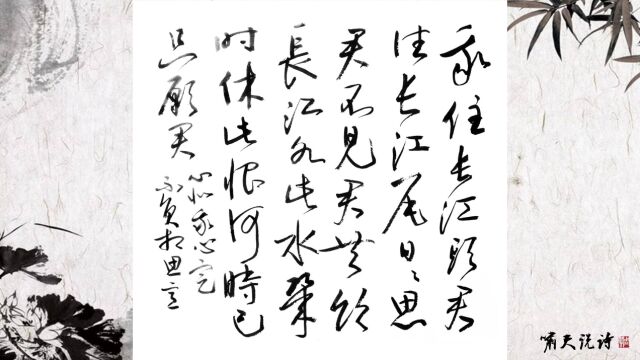 我住长江頭君
住长江尾日〻思
君不見君共飲
長江水此水幾
时休此恨何時已
只願君心似我心定
不負相思意
嘯天说诗